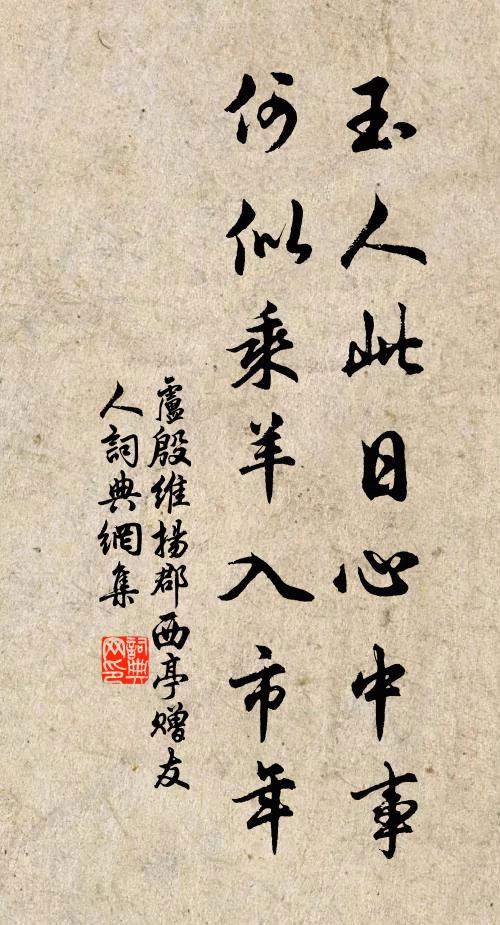 玉人此日心中事
何似乘羊入市年
盧殷維揚郡西亭贈友
人詞典網集
詞典网印